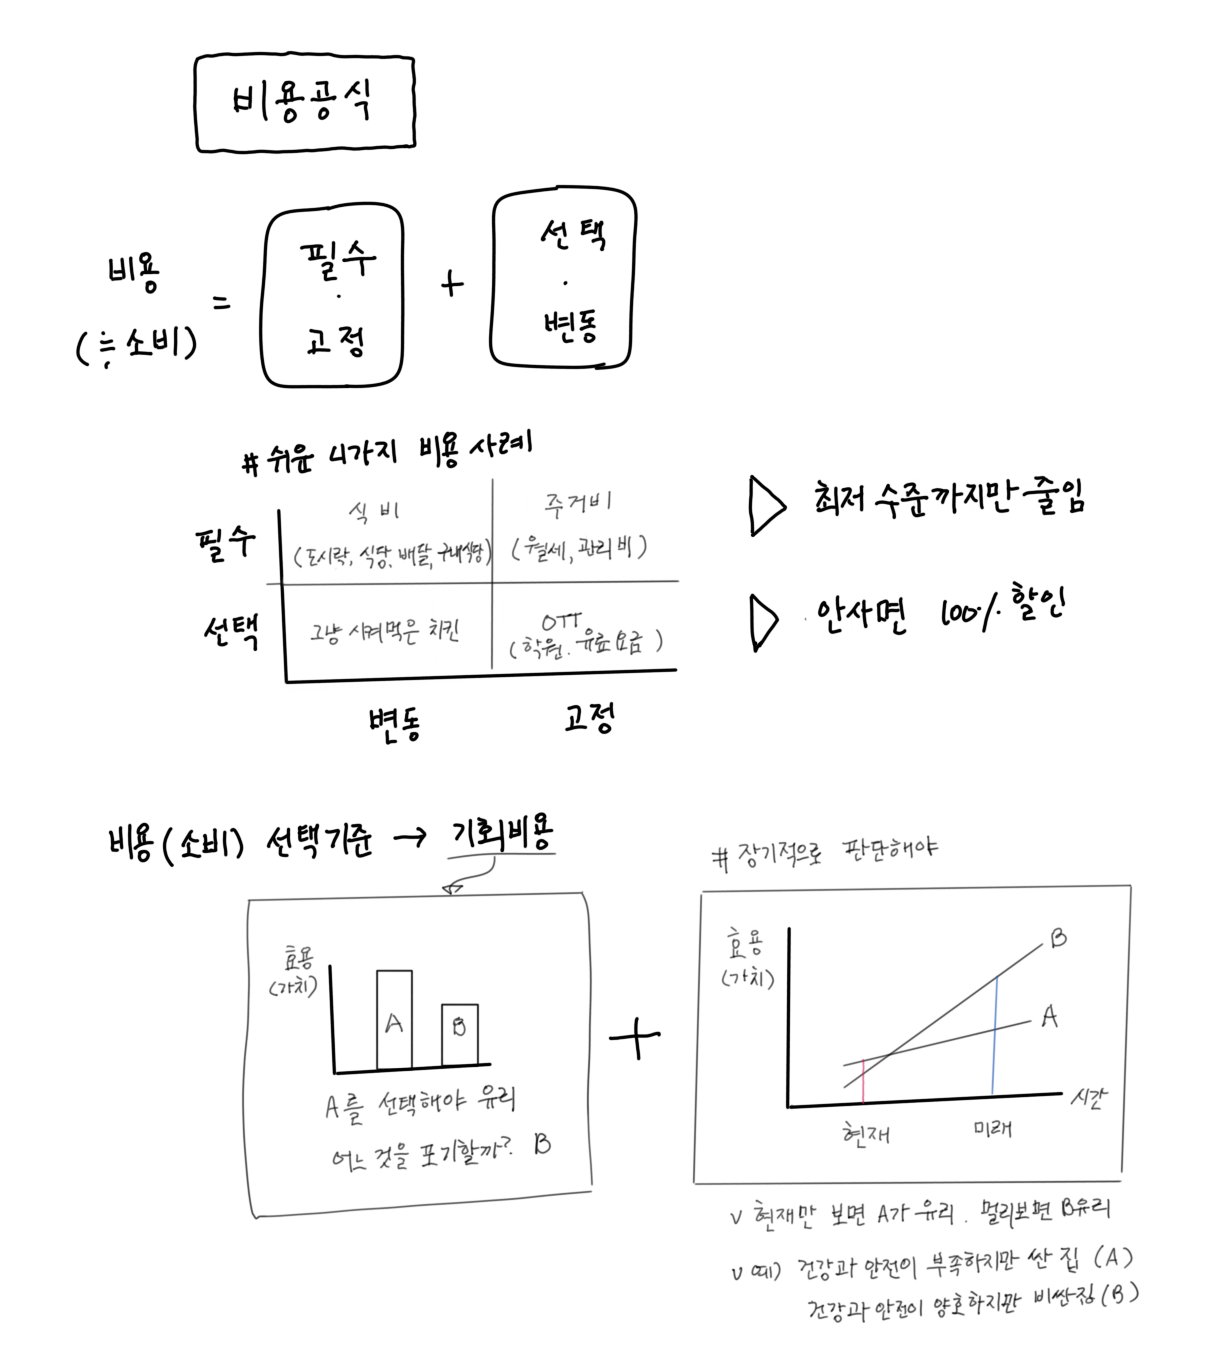 비용공식
비용
(≒소비)
=
필수
·
고정
+
선택
·
변동
# 쉬운 4가지 비용 사례
필수
식비
(도시락, 식당, 배달, 구내식당)
주거비
(월세, 관리비)
▷ 최저 수준까지만 줄임
선택
그냥 시켜먹은 치킨
OTT
(학원, 유료요금)
▷ 안사면 100% 할인
변동
고정
비용(소비) 선택기준 → 기회비용
효용
(가치)
A
B
A를 선택해야 유리
어느 것을 포기할까? B
+
# 장기적으로 판단해야
효용
(가치)
B
A
시간
현재
미래
v 현재만 보면 A가 유리. 멀리보면 B유리
v 예) 건강과 안전이 부족하지만 싼 집 (A)
건강과 안전이 양호하지만 비싼집 (B)